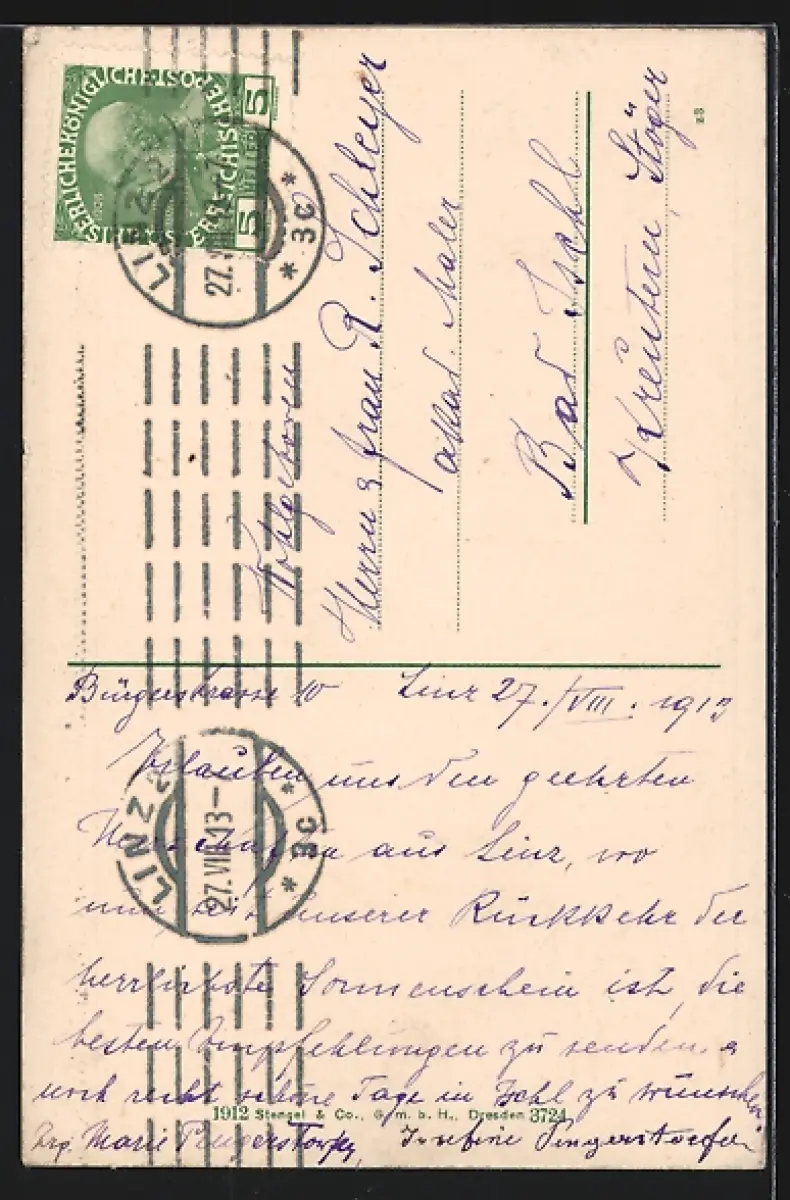 KAISERLICHE KÖNIGLICHE ÖSTERREICHISCHE POST
5 HELLER 5
1908
LINZ
27.VIII.13
* 3c *
Wohlgeboren
Herrn & Frau R. Schleyer
akad. Maler
Bad Ischl
Kreutern, Stöger
Bürgerstrasse 10 Linz 27./VIII. 1913
Erlauben uns den geehrten
Herrschaften aus Linz, wo
nun seit unserer Rückkehr der
herrlichste Sonnenschein ist, die
besten Empfehlungen zu senden &
noch recht schöne Tage in Ischl zu wünschen
Marie Pengerstorfer Josefine Pengerstorfer
LINZ
27.VIII.13
* 3c *
1912 Stengel & Co., G. m. b. H., Dresden 3724